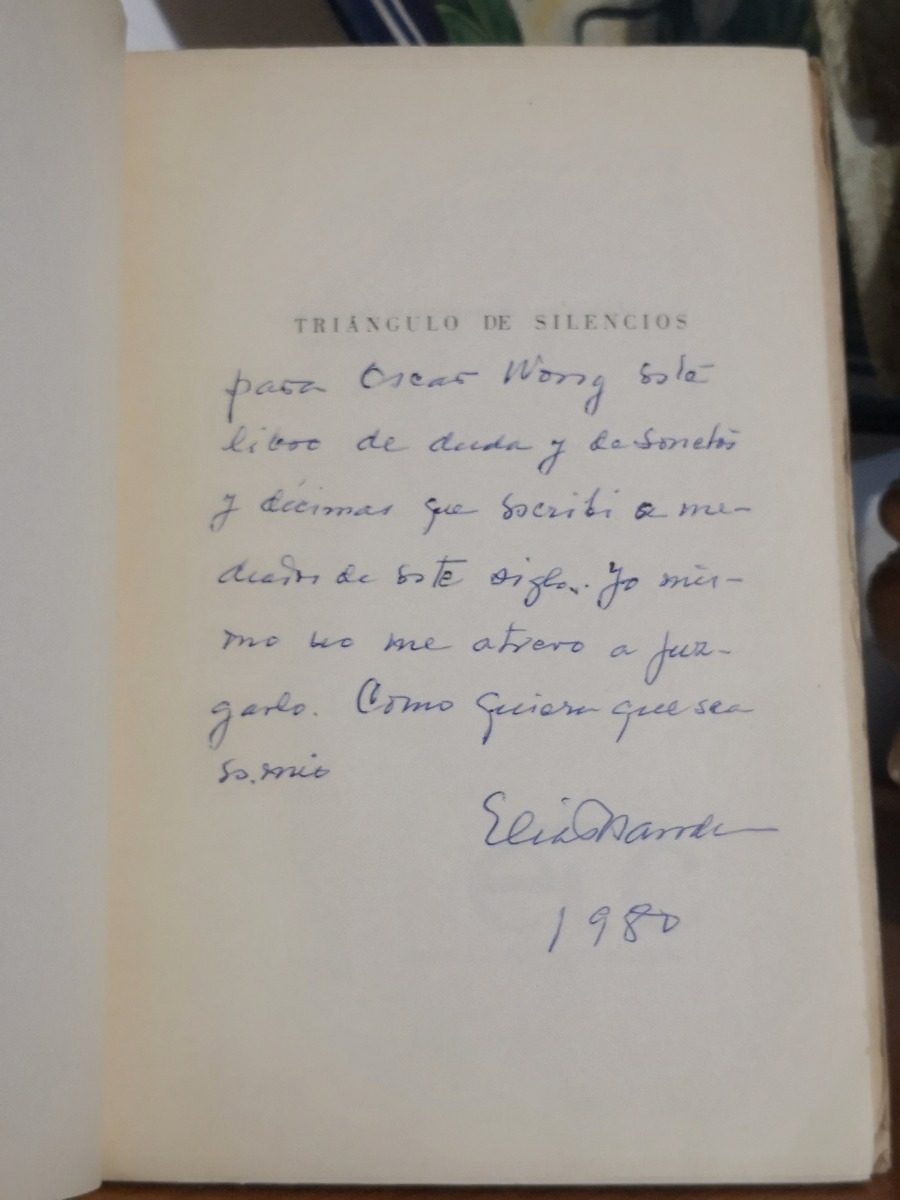 TRIÁNGULO DE SILENCIOS
para Oscar Wong este
libro de duda y de sonetos
y décimas que escribí a me-
diados de este siglo. Yo mis-
mo no me atrevo a juz-
garlo. Como quiera que sea
es mío
Elías Nandino
1980